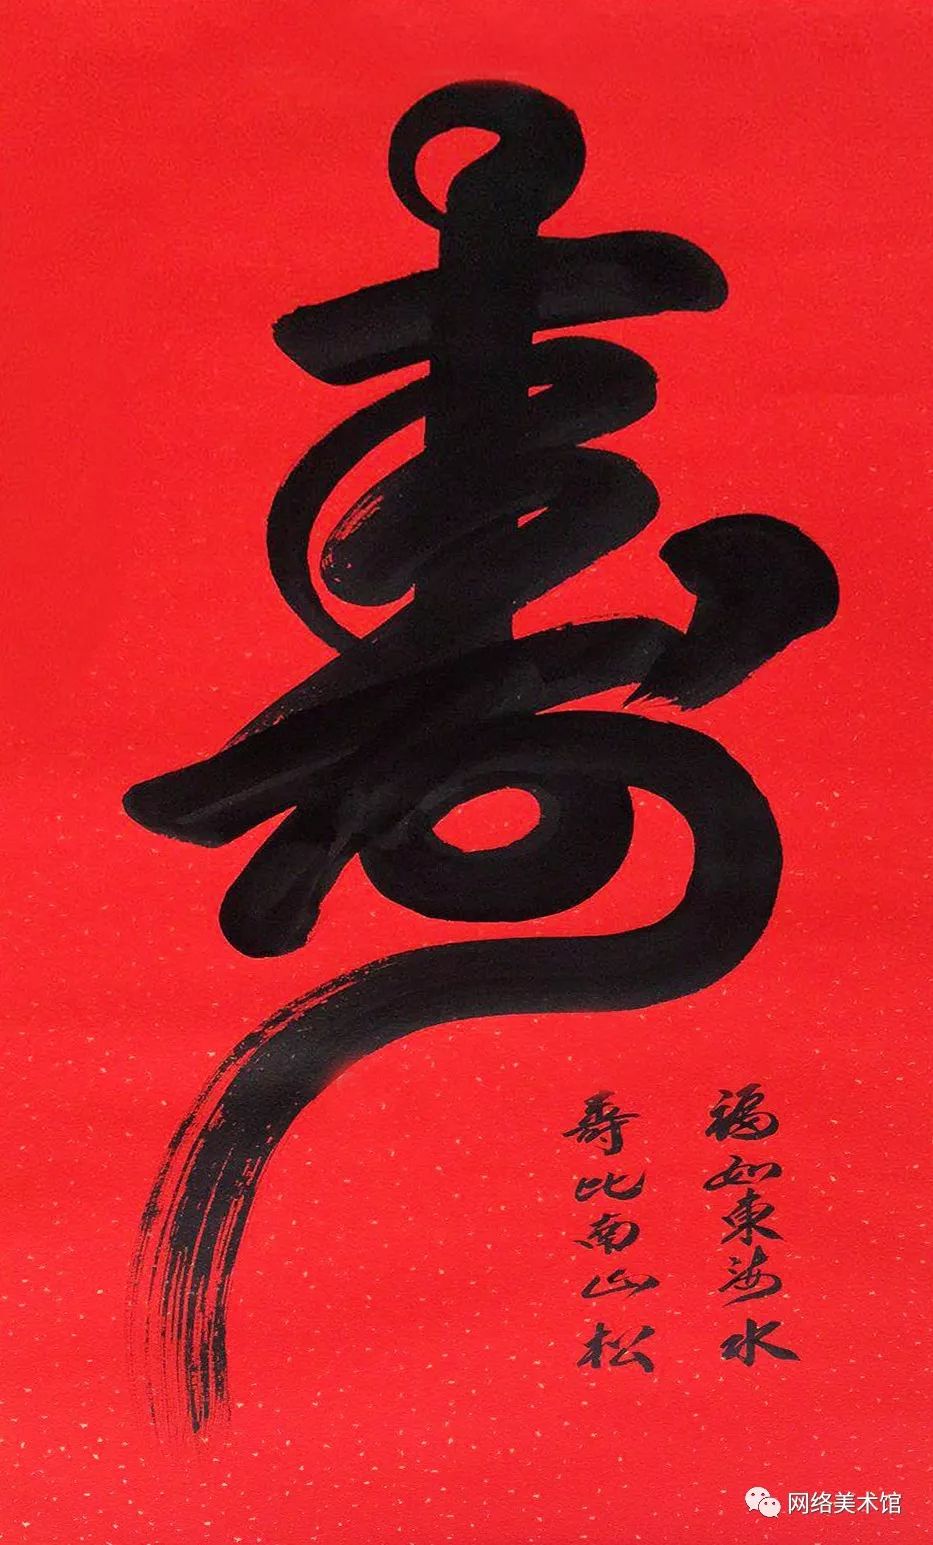 寿
福如東海水
寿比南山松
网络美术馆